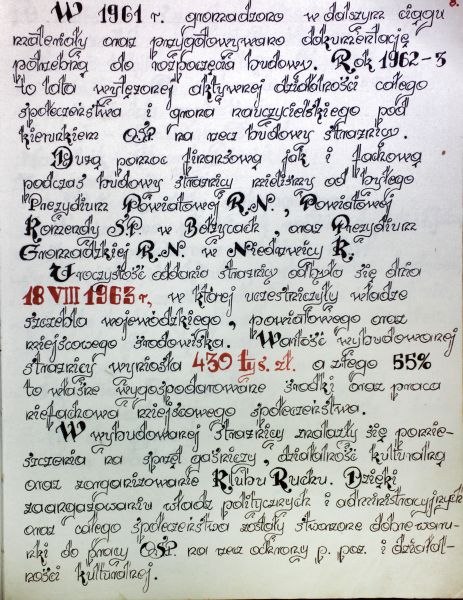 8.
W 1961 r. gromadzono w dalszym ciągu
materiały oraz przygotowywano dokumentację
potrzebną do rozpoczęcia budowy. Rok 1962-3
to lata wytężonej aktywnej działalności całego
społeczeństwa i grona nauczycielskiego pod
kierunkiem OSP na rzecz budowy strażnicy.
Dużą pomoc finansową jak i fachową
podczas budowy strażnicy mieliśmy od byłego
Prezydium Powiatowej R.N., Powiatowej
Komendy S.P. w Bełżycach, oraz Prezydium
Gromadzkiej R.N. w Niedrzwicy K.
Uroczystość oddania strażnicy odbyła się dnia
18 VIII 1963 r, w której uczestniczyły władze
szczebla wojewódzkiego, powiatowego oraz
miejscowego środowiska. Wartość wybudowanej
strażnicy wyniosła 430 tyś. zł. a z tego 55%
to własne wygospodarowane środki oraz praca
niefachowa miejscowego społeczeństwa.
W wybudowanej strażnicy znalazły się pomie-
szczenia na sprzęt gaśniczy, działalność kulturalną
oraz zorganizowanie Klubu Ruchu. Dzięki
zaangażowaniu władz politycznych i administracyjnych
oraz całego społeczeństwa zostały stworzone dobre waru-
nki do pracy OSP na rzecz ochrony p. poż. i działal-
ności kulturalnej.